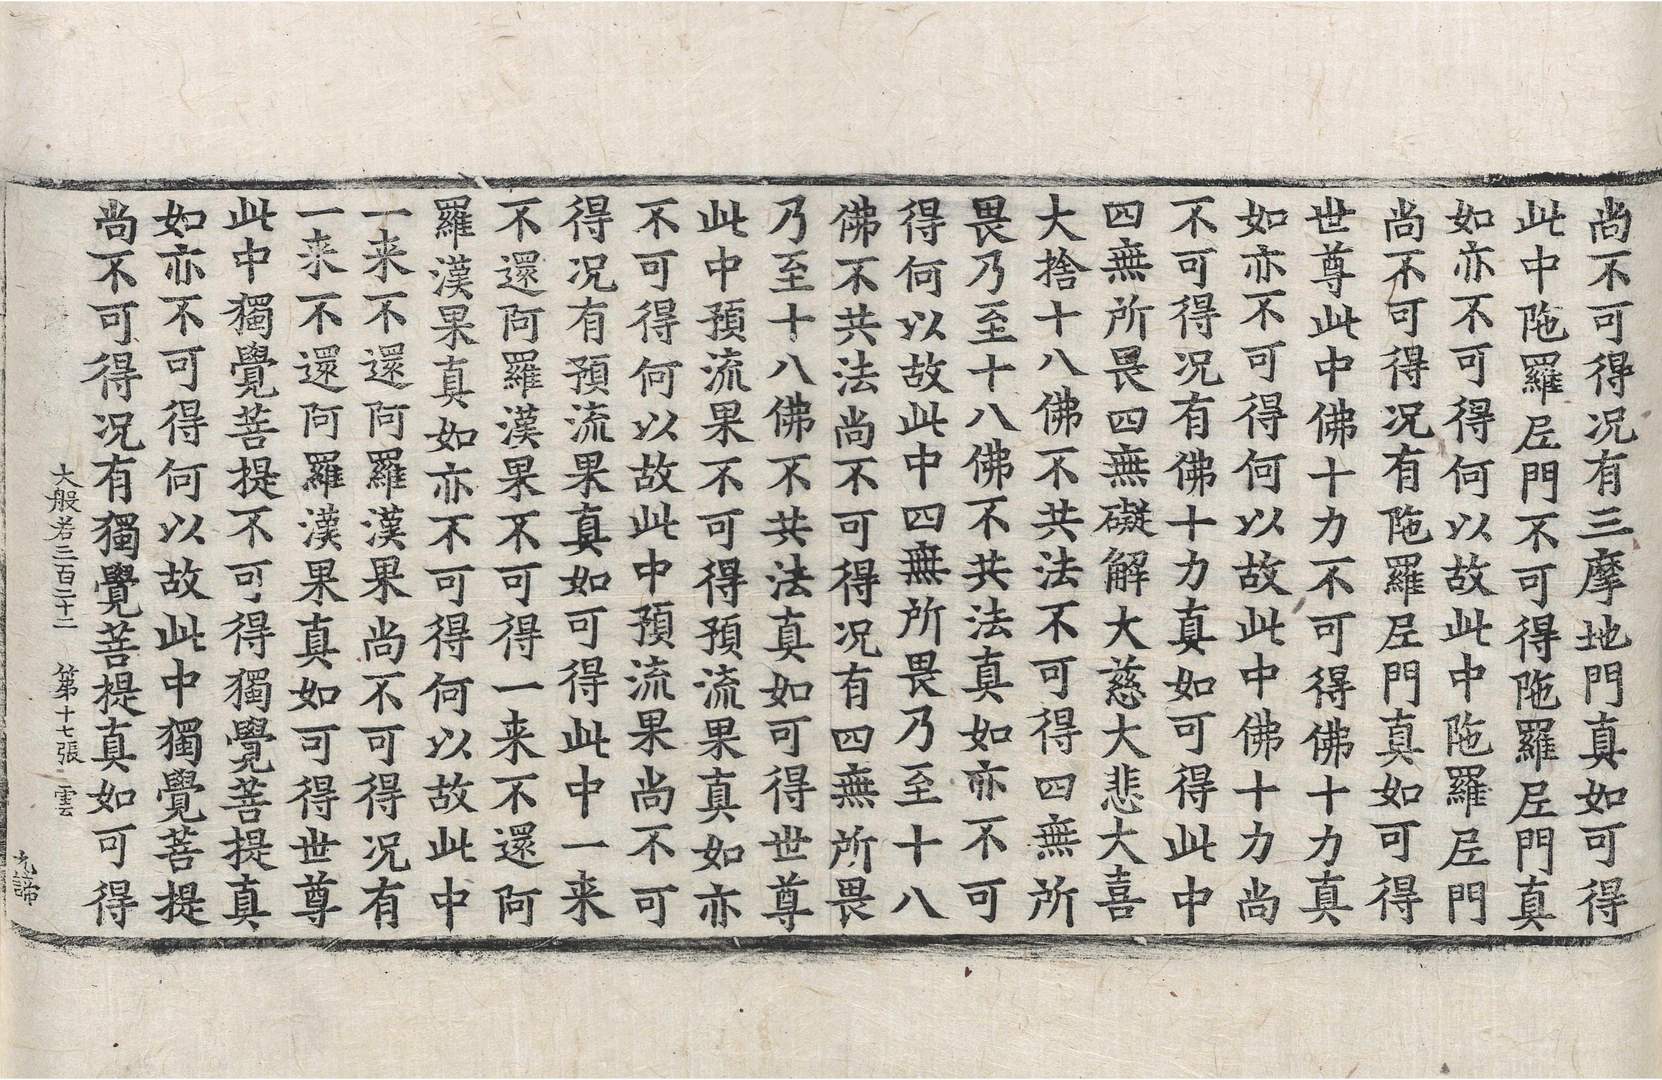 尚不可得况有三摩地門真如可得
此中陁羅尼門不可得陁羅尼門真
如亦不可得何以故此中陁羅尼門
尚不可得况有陁羅尼門真如可得
世尊此中佛十力不可得佛十力真
如亦不可得何以故此中佛十力尚
不可得况有佛十力真如可得此中
四無所畏四無礙解大慈大悲大喜
大捨十八佛不共法不可得四無所
畏乃至十八佛不共法真如亦不可
得何以故此中四無所畏乃至十八
佛不共法尚不可得况有四無所畏
乃至十八佛不共法真如可得世尊
此中預流果不可得預流果真如亦
不可得何以故此中預流果尚不可
得况有預流果真如可得此中一来
不還阿羅漢果不可得一来不還阿
羅漢果真如亦不可得何以故此中
一来不還阿羅漢果尚不可得况有
一来不還阿羅漢果真如可得世尊
此中獨覺菩提不可得獨覺菩提真
如亦不可得何以故此中獨覺菩提
尚不可得况有獨覺菩提真如可得
大般若三百二十二 第十七張 雲